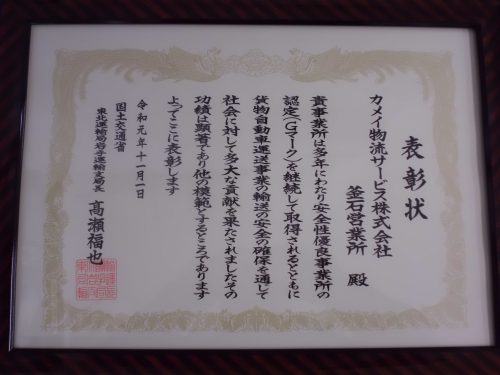 表彰状
カメイ物流サービス株式会社
釜石営業所 殿
貴事業所は多年にわたり安全性優良事業所の
認定(Gマーク)を継続して取得されるとともに
貨物自動車運送事業の輸送の安全の確保を通して
社会に対して多大な貢献を果たされましたその
功績は顕著であり他の模範とするところであります
よってここに表彰します
令和元年十一月一日
国土交通省
東北運輸局岩手運輸支局長 高瀬福也